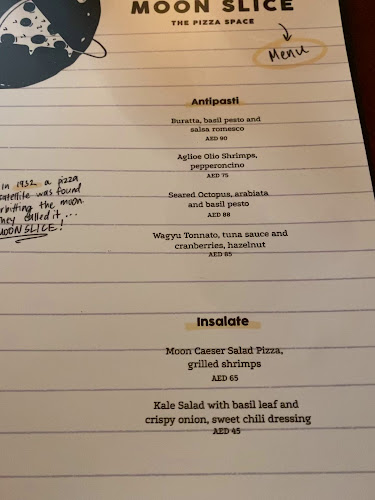 MOON SLICE
THE PIZZA SPACE
Menu
Antipasti
Buratta, basil pesto and
salsa romesco
AED 90
Aglioe Olio Shrimps,
pepperoncino
AED 75
Seared Octopus, arabiata
and basil pesto
AED 88
Wagyu Tonnato, tuna sauce and
cranberries, hazelnut
AED 85
in 1932 a pizza
satellite was found
orbitting the moon.
they called it...
MOON SLICE!
Insalate
Moon Caeser Salad Pizza,
grilled shrimps
AED 65
Kale Salad with basil leaf and
crispy onion, sweet chili dressing
AED 45